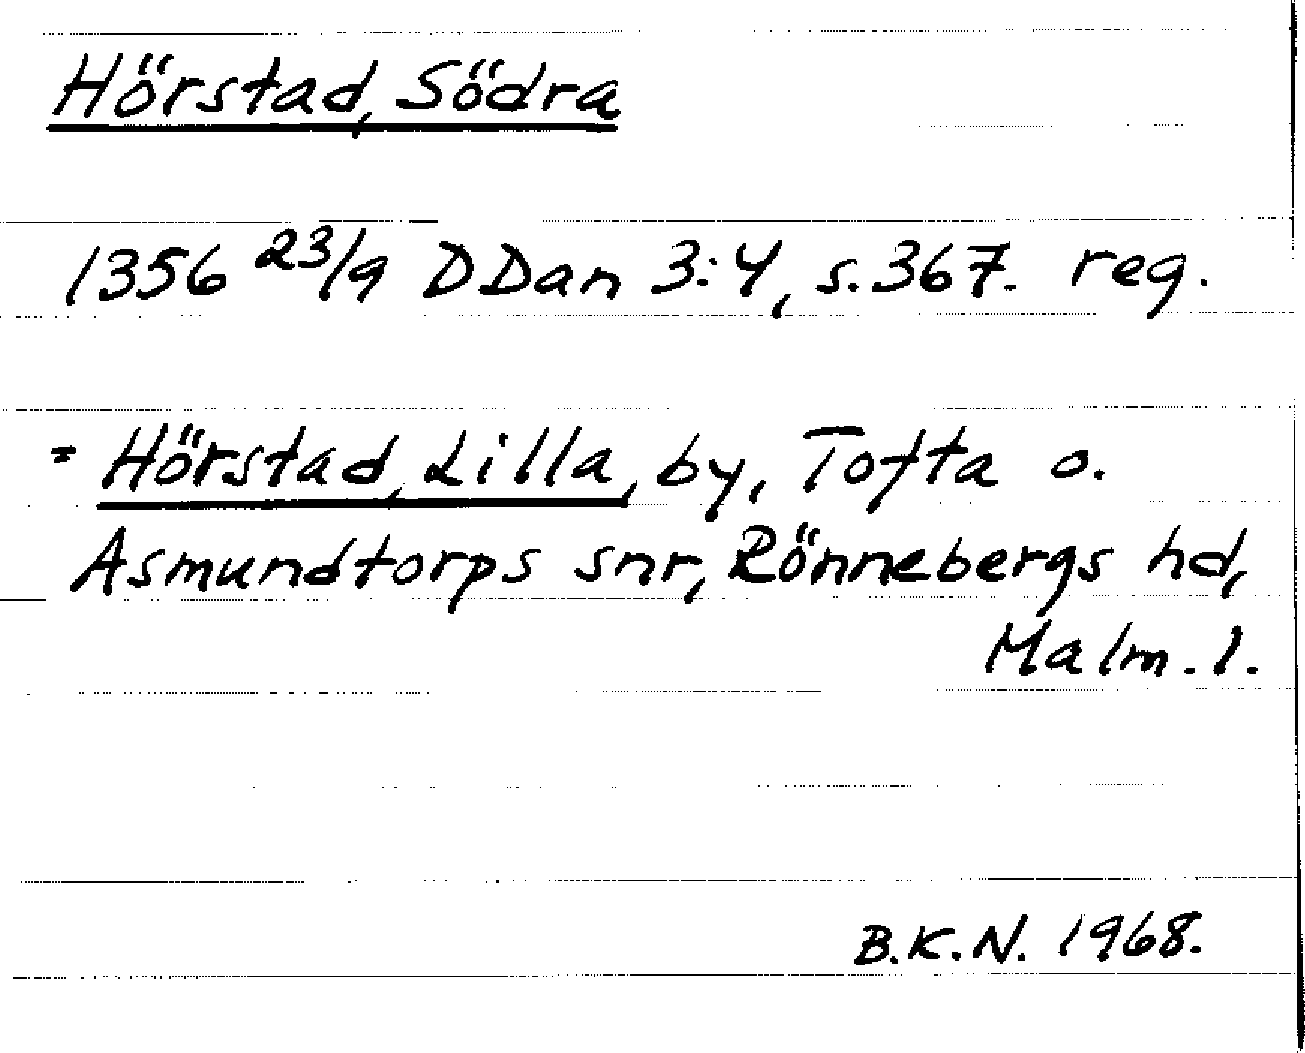 Hörstad, Södra
1356 23/9 DDan 3:4, s.367. reg.
= Hörstad, Lilla, by, Tofta o.
Asmundtorps snr, Rönnebergs hd,
Malm. l.
B.K.N. 1968.